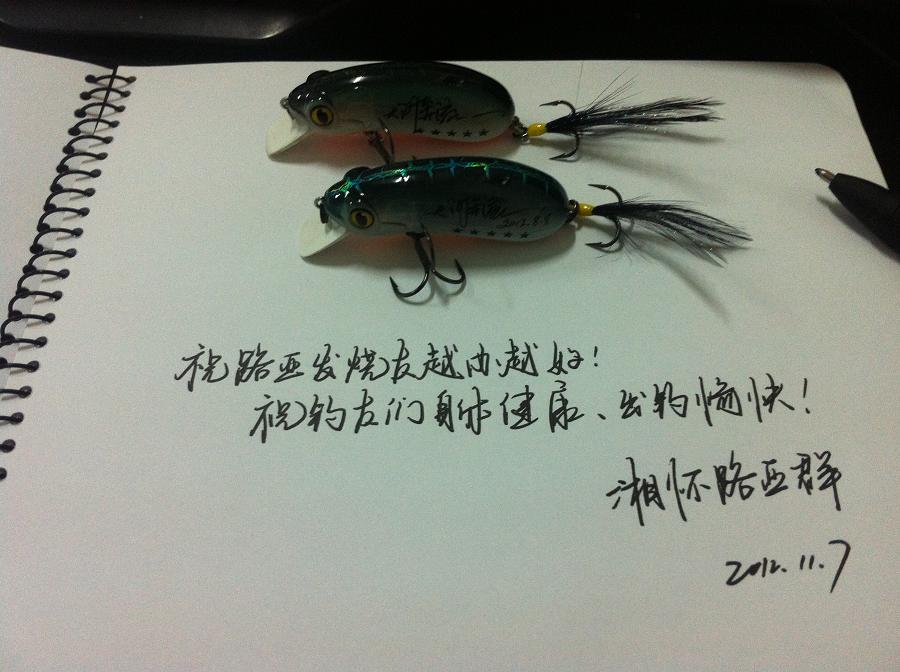 2012.8.8
祝路亚发烧友越办越好!
祝钓友们身体健康、出钓愉快!
湘怀路亚群
2012.11.7